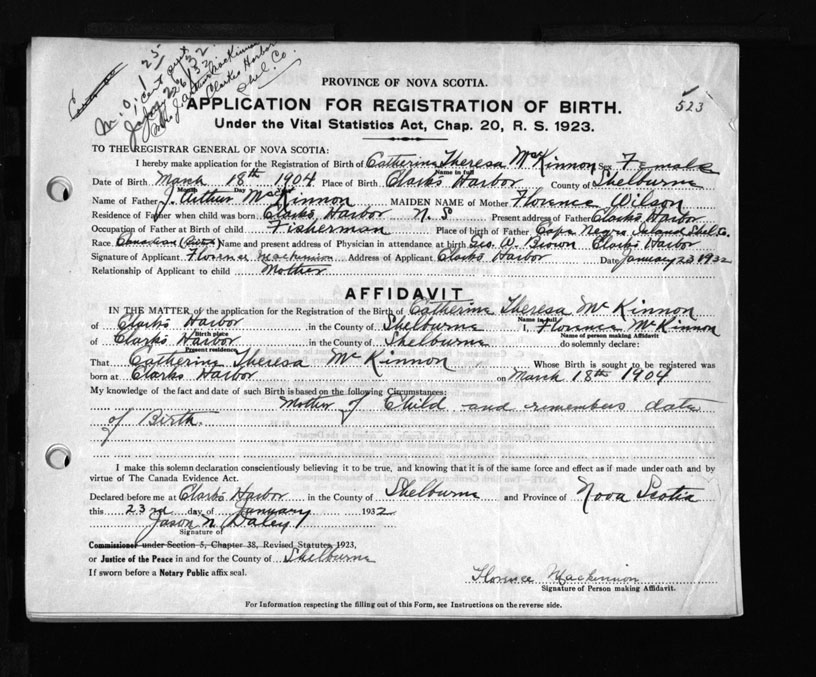 1 25
523
PROVINCE OF NOVA SCOTIA.
APPLICATION FOR REGISTRATION OF BIRTH.
Under the Vital Statistics Act, Chap. 20, R. S. 1923.
TO THE REGISTRAR GENERAL OF NOVA SCOTIA:
I hereby make application for the Registration of Birth of Catherine Theresa McKinnon Sex Female
Name in full
Date of Birth March 18th 1904 Place of Birth Clarks Harbor County of Shelburne
Month Day
Name of Father J. Arthur McKinnon MAIDEN NAME of Mother Florence Wilson
Residence of Father when child was born Clarks Harbor N. S Present address of Father Clarks Harbor
Occupation of Father at Birth of child Fisherman Place of birth of Father Cape Negro Island Shel. Co.
Race Canadian Name and present address of Physician in attendance at birth Geo. W. Brown Clarks Harbor
Signature of Applicant Florence Mackinnon Address of Applicant Clarks Harbor Date January 23 1932
Relationship of Applicant to child Mother
AFFIDAVIT
IN THE MATTER of the application for the Registration of the Birth of Catherine Theresa McKinnon
Name in full
of Clarks Harbor in the County of Shelburne I, Florence McKinnon
Birth place Name of person making Affidavit
of Clarks Harbor in the County of Shelburne do solemnly declare:
Present residence
That Catherine Theresa McKinnon Whose Birth is sought to be registered was
born at Clarks Harbor on March 18th 1904
My knowledge of the fact and date of such Birth is based on the following Circumstances:
Mother of Child and remembers date
of Birth.
I make this solemn declaration conscientiously believing it to be true, and knowing that it is of the same force and effect as if made under oath and by
virtue of The Canada Evidence Act.
Declared before me at Clarks Harbor in the County of Shelburne and Province of Nova Scotia
this 23rd day of January 1932
Jason N Daley
Signature of
Commissioner under Section 5, Chapter 38, Revised Statutes, 1923,
or Justice of the Peace in and for the County of Shelburne
If sworn before a Notary Public affix seal.
Florence Mackinnon
Signature of Person making Affidavit.
For Information respecting the filling out of this Form, see Instructions on the reverse side.